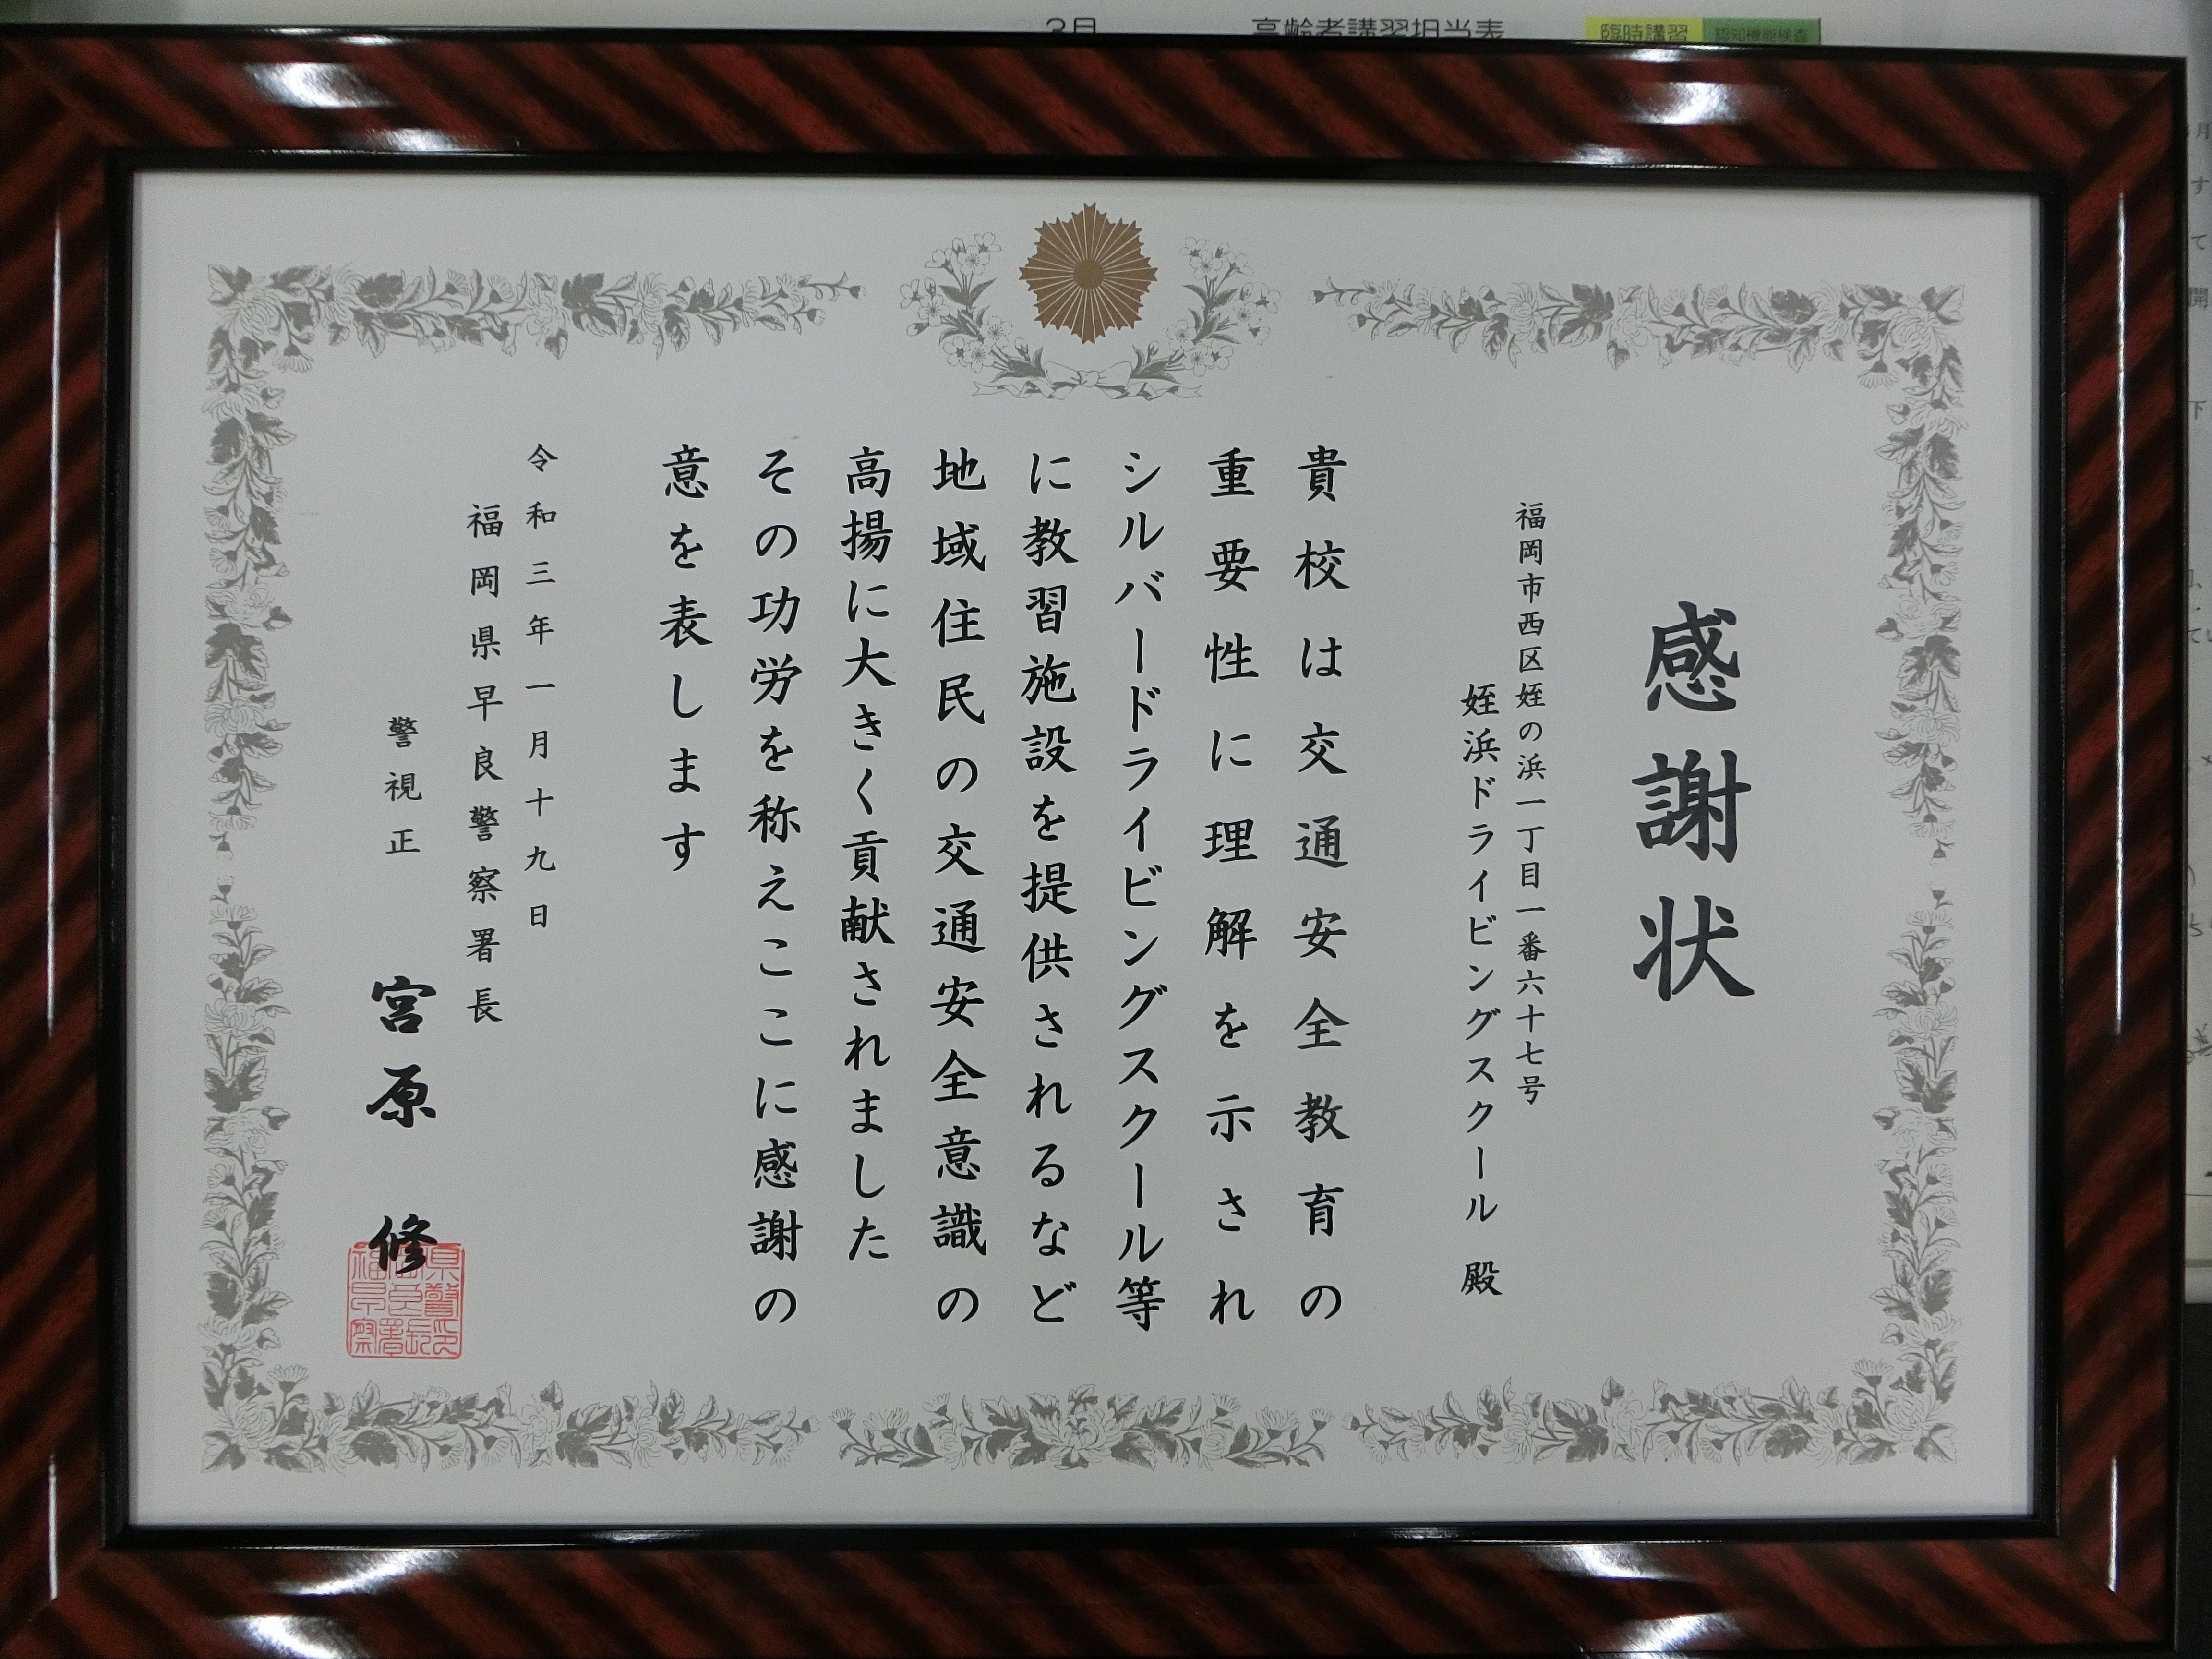 3月
高齢者講習担当表
臨時講習
認知機能検査
感謝状
福岡市西区姪の浜一丁目一番六十七号
姪浜ドライビングスクール 殿
貴校は交通安全教育の
重要性に理解を示され
シルバードライビングスクール等
に教習施設を提供されるなど
地域住民の交通安全意識の
高揚に大きく貢献されました
その功労を称えここに感謝の
意を表します
令和三年一月十九日
福岡県早良警察署長
警視正 宮原 修